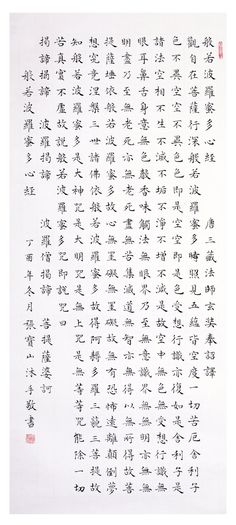 般若波羅蜜多心經 唐三藏法師玄奘奉詔譯
觀自在菩薩行深般若波羅蜜多時照見五蘊皆空度一切苦厄舍利子
色不異空空不異色色即是空空即是色受想行識亦復如是舍利子是
諸法空相不生不滅不垢不淨不增不減是故空中無色無受想行識無
眼耳鼻舌身意無色聲香味觸法無眼界乃至無意識界無無明亦無無
明盡乃至無老死亦無老死盡無苦集滅道無智亦無得以無所得故菩
提薩埵依般若波羅蜜多故心無罣礙無罣礙故無有恐怖遠離顛倒夢
想究竟涅槃三世諸佛依般若波羅蜜多故得阿耨多羅三藐三菩提故
知般若波羅蜜多是大神咒是大明咒是無上咒是無等等咒能除一切
苦真實不虛故說般若波羅蜜多咒即說咒曰
揭諦揭諦 波羅揭諦 波羅僧揭諦 菩提薩婆訶
般若波羅蜜多心經 丁酉年冬月張寶山沐手敬書